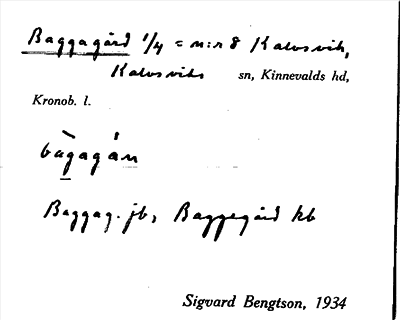 Baggagård 1/4 = n:r 8 Kalvsvik,
Kalvsviks sn, Kinnevalds hd,
Kronob. l.
bàgagán
Baggag. jb, Baggegård kb
Sigvard Bengtson, 1934